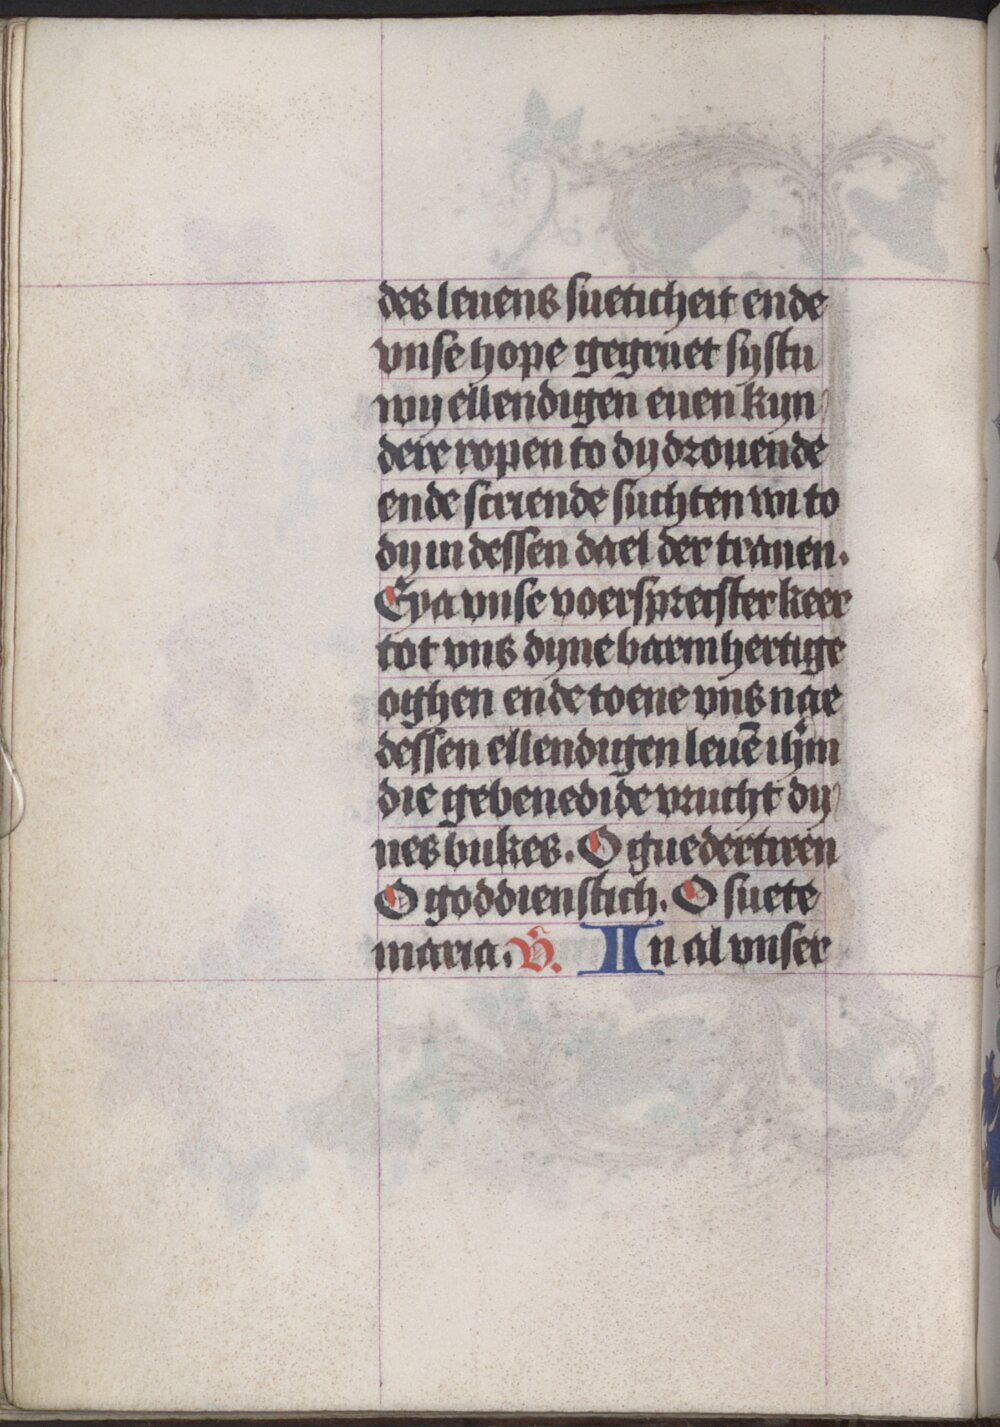 des leuens sueticheit ende
vnse hope gegruet systu
wy ellendigen euen kyn
dere ropen to dy drouende
ende scriende suchten wi to
dy in dessen dael der tranen.
Eya vnse voersprerster keer
tot vns dyne barmhertige
oghen ende toene vns nae
dessen ellendigen leuē ihm
die gebenedide vrucht dy
nes bukes. O guedertiren
O goddienstich. O suete
maria. V. In al vnser